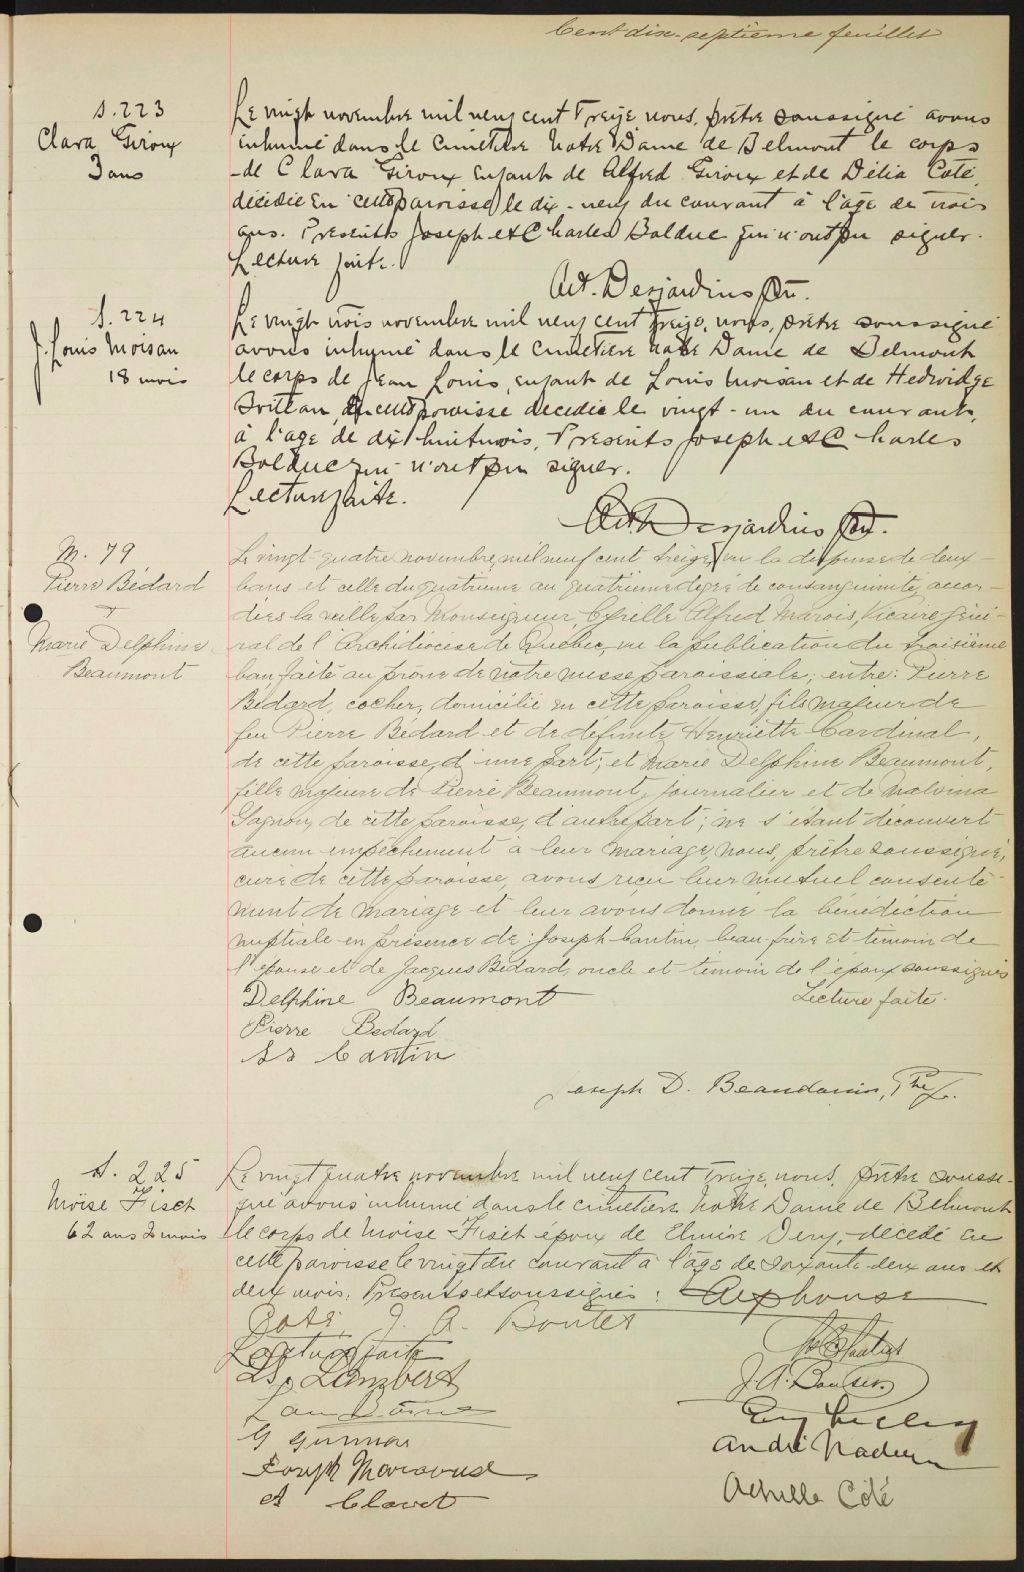 Cent dix-septième feuillet
S. 223
Clara Giroux
3 ans
Le vingt novembre mil neuf cent treize nous, prêtre soussigné avons
inhumé dans le cimetière Notre Dame de Belmont le corps
de Clara Giroux enfant de Alfred Giroux et de Délia Coté,
décédée en cette paroisse le dix-neuf du courant à l'âge de trois
ans. Présents Joseph et Charles Bolduc qui n'ont pu signer.
Lecture faite.
Art. Desjardins Ptr.
S. 224
J. Louis Moisan
18 mois
Le vingt trois novembre mil neuf cent treize, nous, prêtre soussigné
avons inhumé dans le cimetière Notre Dame de Belmont
le corps de Jean Louis, enfant de Louis Moisan et de Hedwidge
de cette paroisse décédé le vingt-un du courant,
à l'age de dix huit mois. Présents Joseph et Charles
Bolduc qui n'ont pu signer.
Lecture faite.
Art. Desjardins Ptr.
M. 79
Pierre Bédard
+
Marie Delphine
Beaumont
Le vingt-quatre novembre, mil neuf cent treize, vu la dispense de deux
bans et celle du quatrième au quatrième degré de consanguinité, accor-
dées la veille par Monseigneur Cyrille Alfred Marois, Vicaire géné-
ral de l'Archidiocèse de Québec, vu la publication du troisième
ban faite au prône de notre messe paroissiale, entre: Pierre
Bédard, cocher, domicilié en cette paroisse, fils majeur de
feu Pierre Bédard et de défunte Henriette Cardinal,
de cette paroisse, d'une part; et Marie Delphine Beaumont,
fille majeure de Pierre Beaumont, journalier et de Malvina
Gagnon, de cette paroisse, d'autre part; ne s'étant découvert
aucun empêchement à leur mariage, nous, prêtre soussigné,
curé de cette paroisse, avons reçu leur mutuel consente-
ment de mariage et leur avons donné la bénédiction
nuptiale en présence de: Joseph Cantin, beau-frère et témoin de
l'épouse et de Jacques Bédard, oncle et témoin de l'époux soussignés
Delphine Beaumont Lecture faite.
Pierre Bedard
Cantin
Joseph D. Beaudoin, Ptre
S. 225
Moïse Fiset
62 ans 2 mois
Le vingt quatre novembre mil neuf cent treize, nous, prêtre soussi-
gné avons inhumé dans le cimetière Notre Dame de Belmont
le corps de Moïse Fiset époux de Elmire Dery, décédé en
cette paroisse le vingt du courant à l'âge de soixante deux ans et
deux mois. Présents et soussignés: Alphonse
Coté, J. A. Boutet
Lecture faite
Lambert
J. A. Boutet
André Nadeau
Joseph
Clavet
Achille Côté